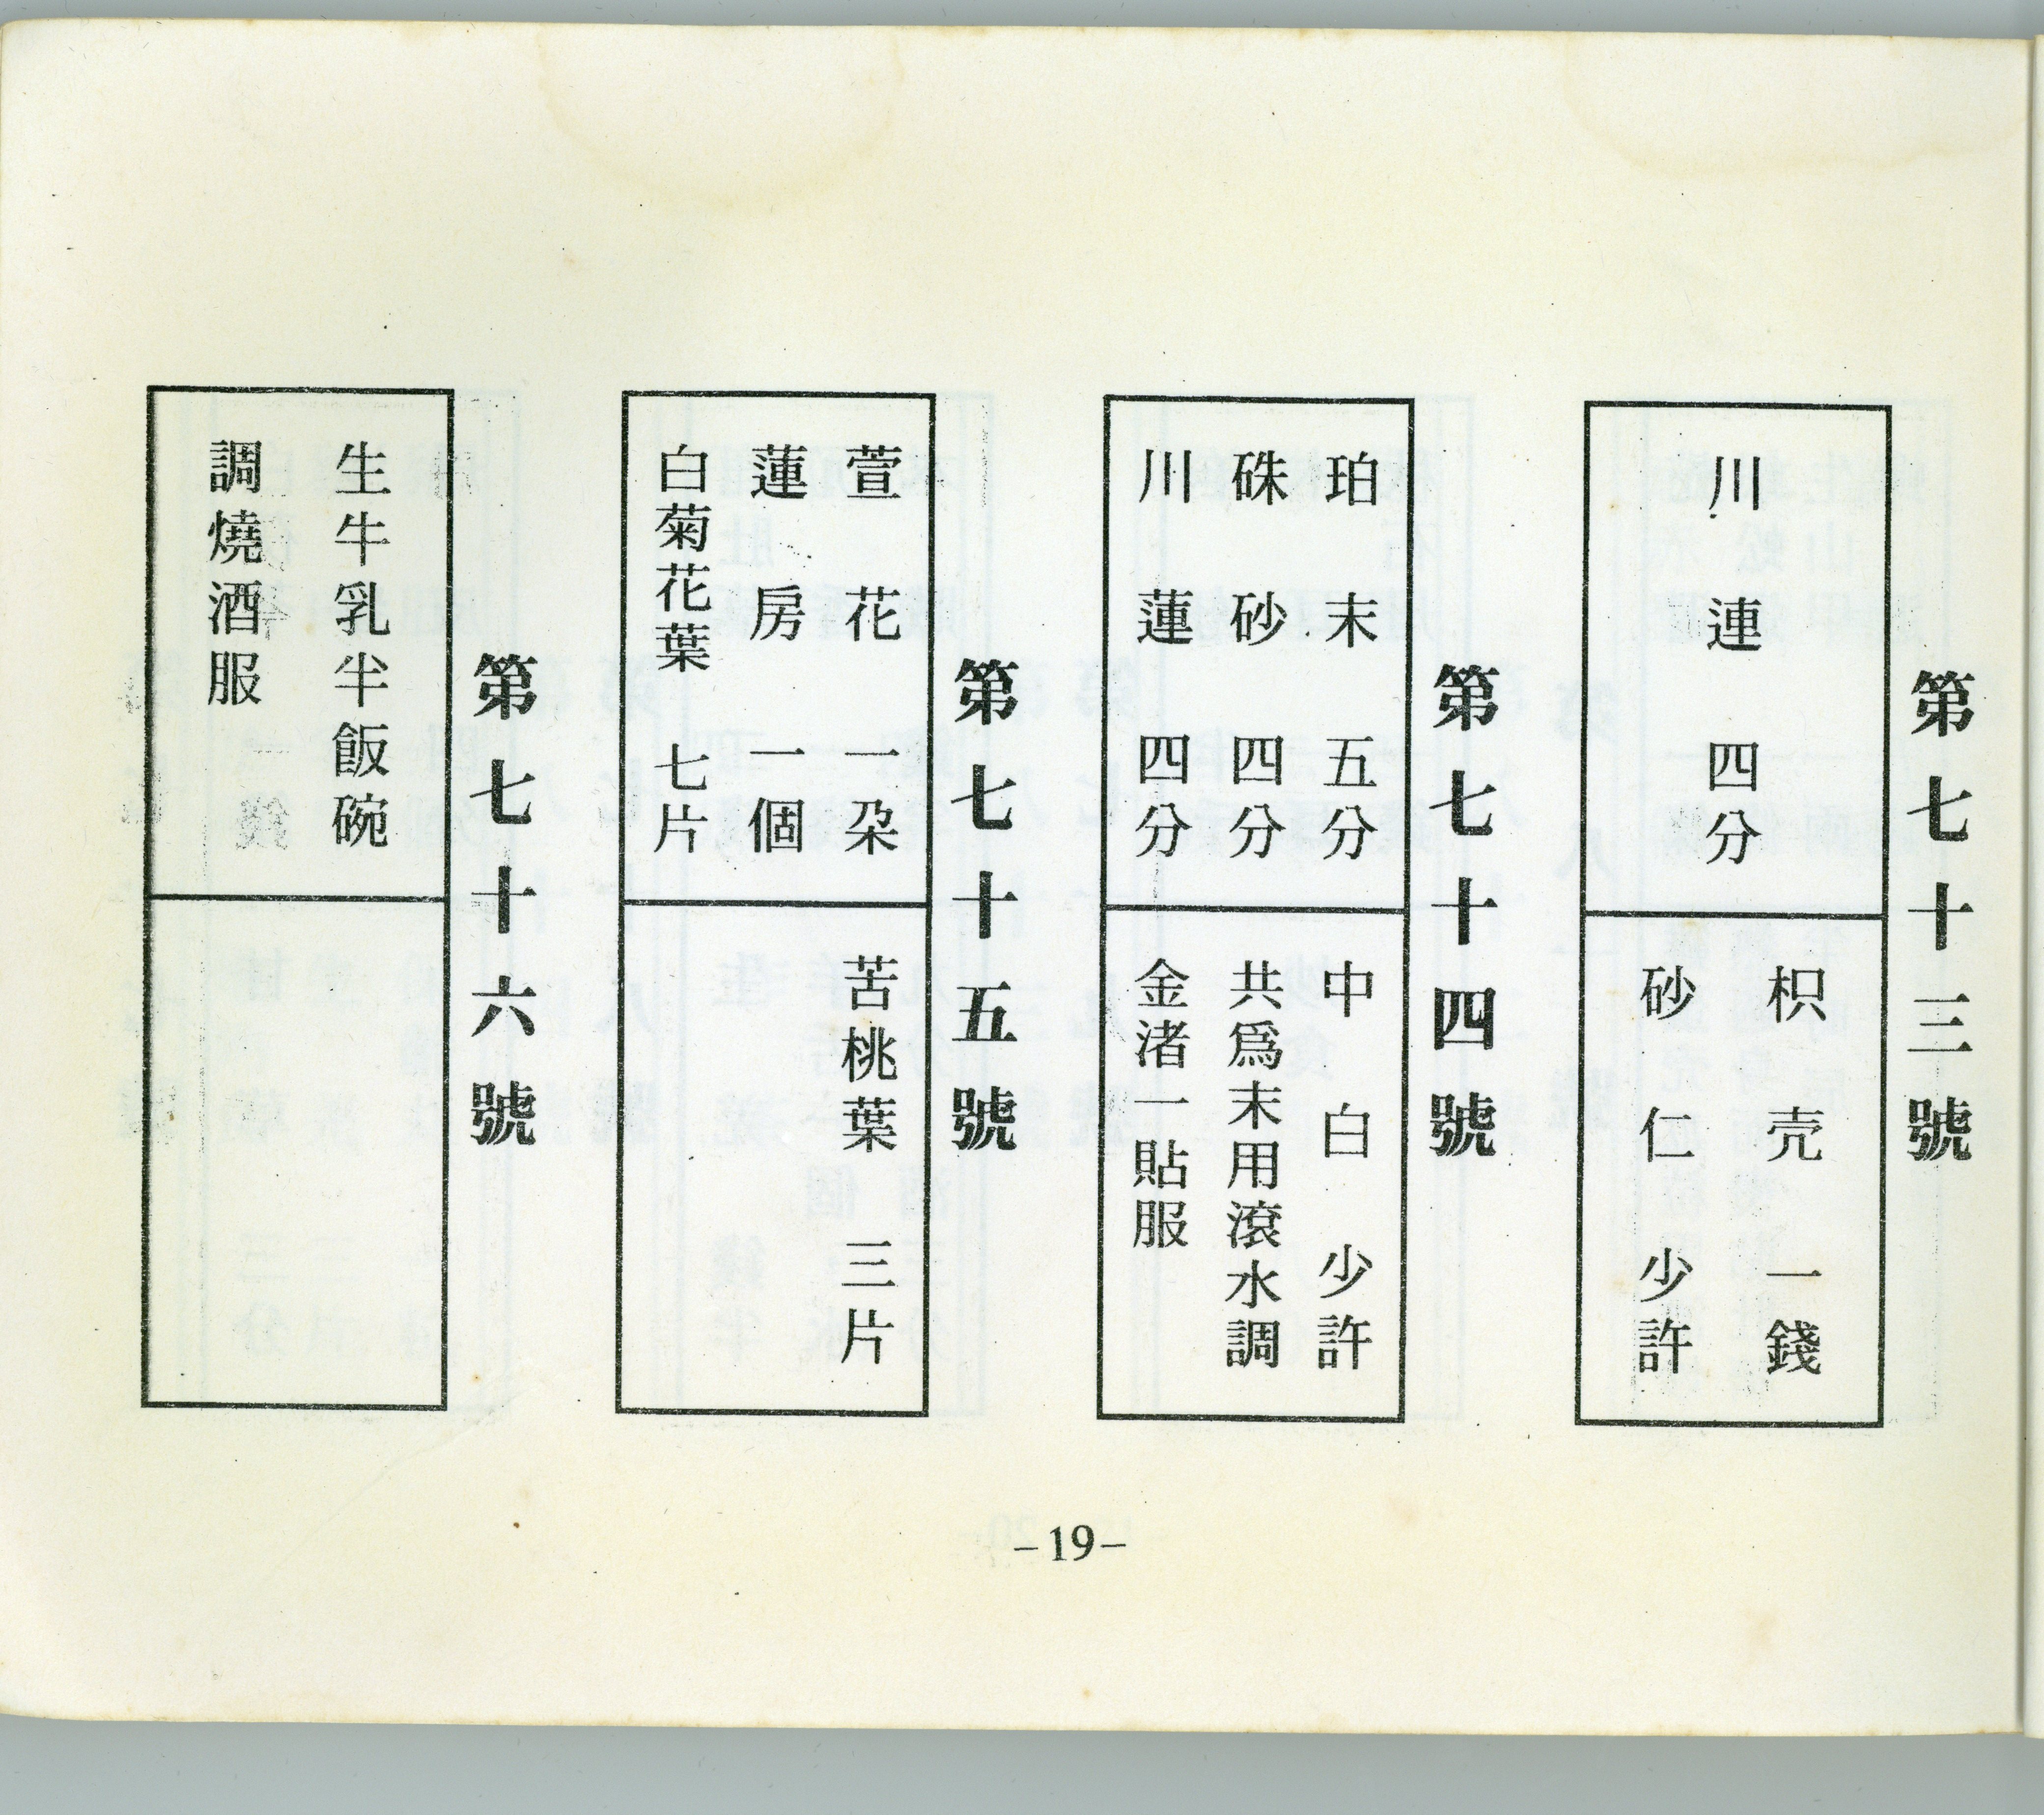 第七十三號
川連 四分
枳壳 一錢
砂仁 少許
第七十四號
珀末 五分
硃砂 四分
川蓮 四分
中白 少許
共爲末用滾水調
金渚一貼服
第七十五號
萱花 一朶
蓮房 一個
白菊花葉 七片
苦桃葉 三片
第七十六號
生牛乳半飯碗
調燒酒服
–19–